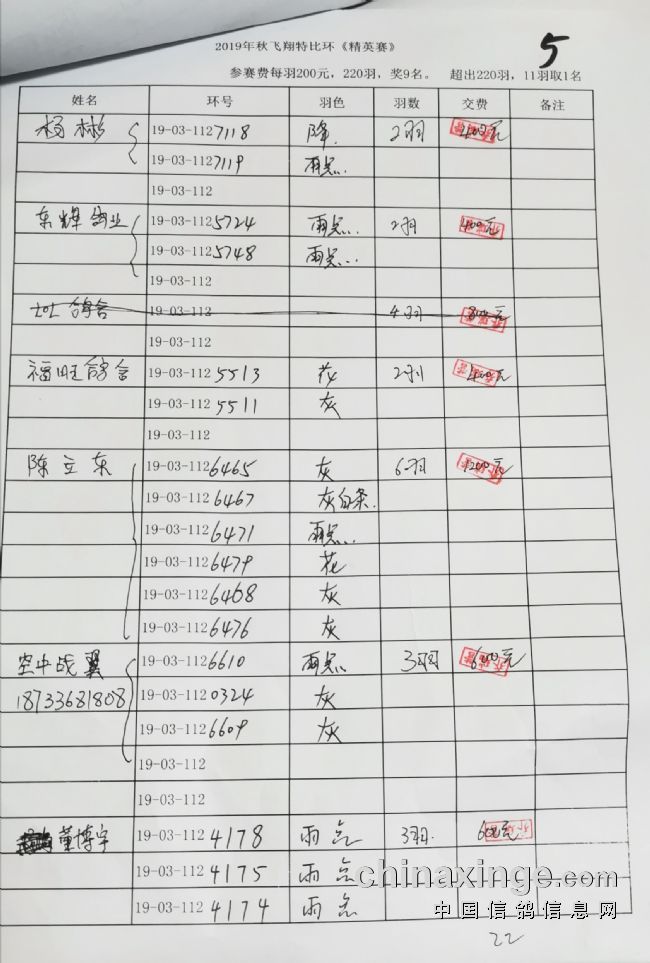 5
2019年秋飞翔特比环《精英赛》
参赛费每羽200元，220羽，奖9名。 超出220羽，11羽取1名
姓名 环号 羽色 羽数 交费 备注
杨彬 19-03-1127118 降. 2羽 400元
19-03-1127119 雨点..
19-03-112
东辉鸽业 19-03-1125724 雨点... 2羽 400元
19-03-1125748 雨点...
19-03-112
鸽舍 19-03-112 4羽 800元
19-03-112
福旺鸽舍 19-03-112 5513 花 2羽 400元
19-03-112 5511 灰
19-03-112
陈立东 19-03-1126465 灰 6羽 1200元
19-03-1126467 灰白条.
19-03-1126471 雨点..
19-03-1126479 花
19-03-1126408 灰
19-03-1126476 灰
空中战翼 19-03-1126610 雨点. 3羽 600元
18733681808 19-03-1120324 灰
19-03-1126609 灰
19-03-112
19-03-112
董博宇 19-03-112 4178 雨点 3羽. 600元
19-03-112 4175 雨点
19-03-112 4174 雨点
chinaxinge.com
中国信鸽信息网
22